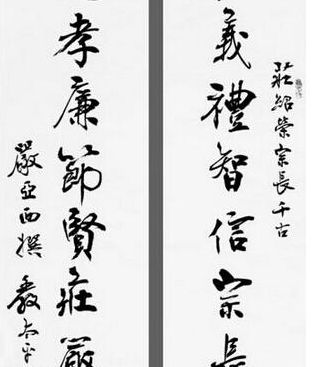 莊紹榮宗長千古
義禮智信宗長
孝廉節賢莊嚴
嚴亞西撰